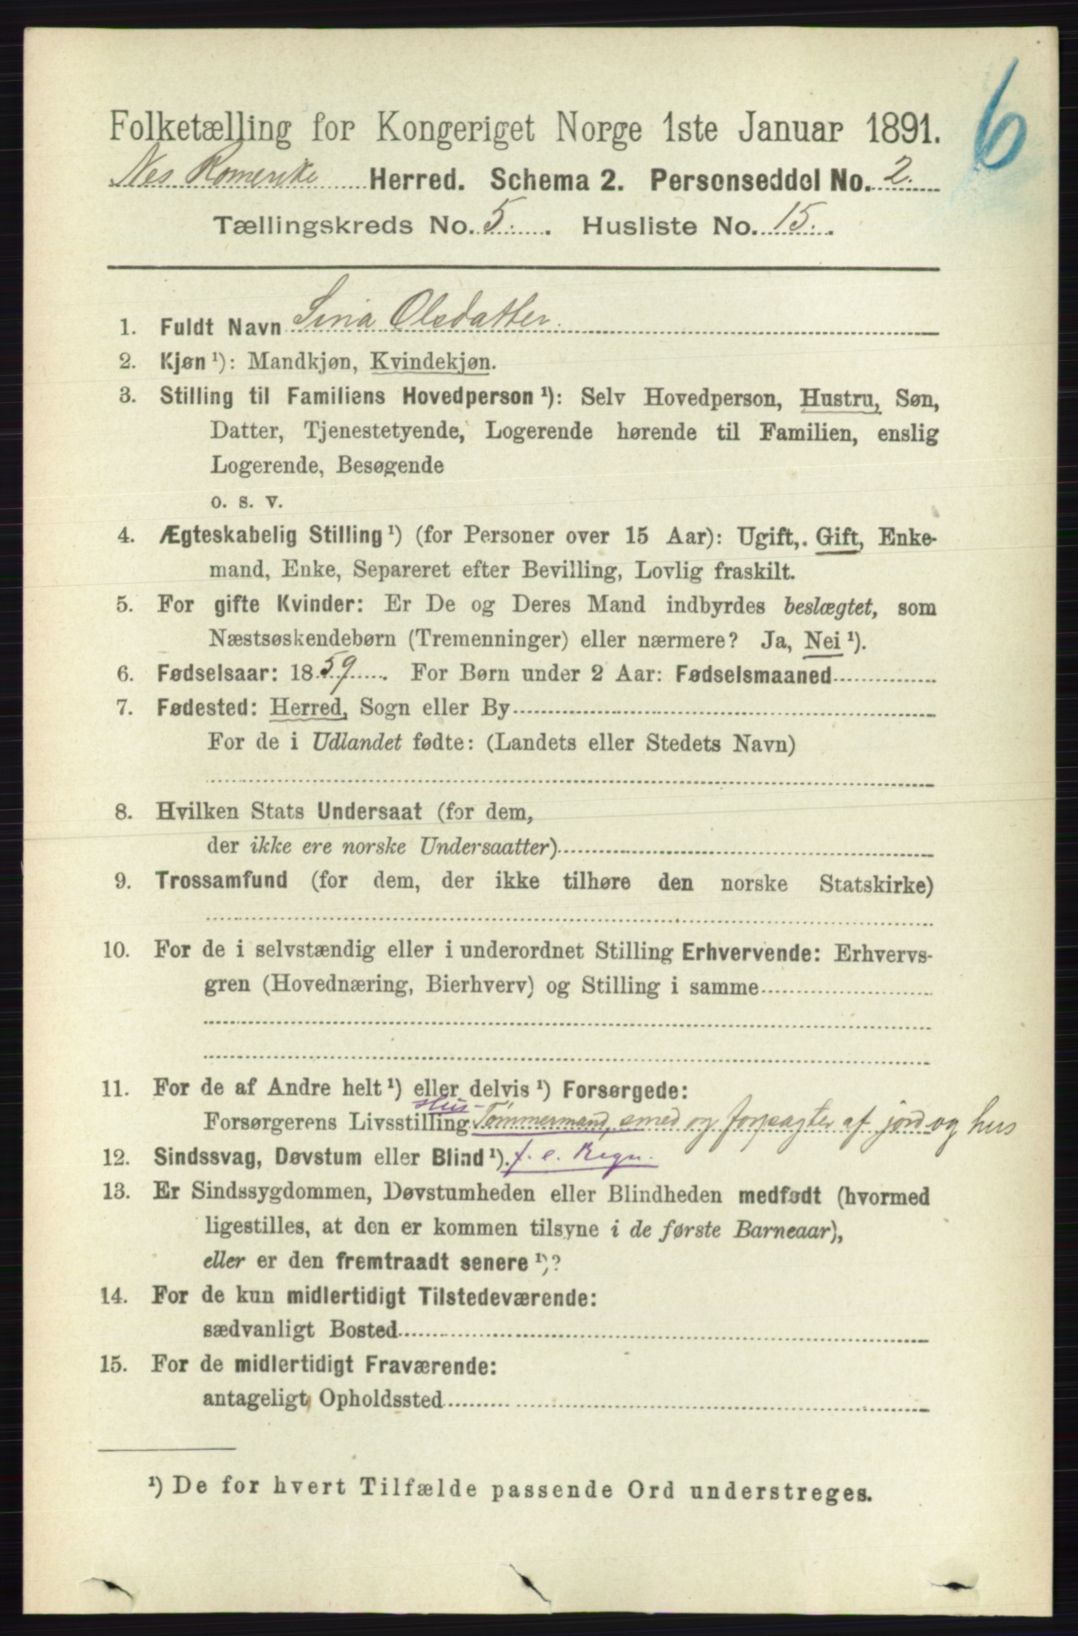 6
Folketælling for Kongeriget Norge 1ste Januar 1891.
Nes Romerike Herred. Schema 2. Personseddel No. 2.
Tællingskreds No. 5. Husliste No. 15.
1. Fuldt Navn Sina Olsdatter.
2. Kjøn ¹): Mandkjøn, Kvindekjøn.
3. Stilling til Familiens Hovedperson ¹): Selv Hovedperson, Hustru, Søn,
Datter, Tjenestetyende, Logerende hørende til Familien, enslig
Logerende, Besøgende
o. s. v.
4. Ægteskabelig Stilling ¹) (for Personer over 15 Aar): Ugift, Gift, Enke-
mand, Enke, Separeret efter Bevilling, Lovlig fraskilt.
5. For gifte Kvinder: Er De og Deres Mand indbyrdes beslægtet, som
Næstsøskendebørn (Tremenninger) eller nærmere? Ja, Nei ¹).
6. Fødselsaar: 1859. For Børn under 2 Aar: Fødselsmaaned
7. Fødested: Herred, Sogn eller By
For de i Udlandet fødte: (Landets eller Stedets Navn)
8. Hvilken Stats Undersaat (for dem,
der ikke ere norske Undersaatter)
9. Trossamfund (for dem, der ikke tilhøre den norske Statskirke)
10. For de i selvstændig eller i underordnet Stilling Erhvervende: Erhvervs-
gren (Hovednæring, Bierhverv) og Stilling i samme
11. For de af Andre helt ¹) eller delvis ¹) Forsørgede:
Hus-
Forsørgerens Livsstilling Tømmermand, smed og forpagter af jord og hus
12. Sindssvag, Døvstum eller Blind ¹). f. e. Regn.
13. Er Sindssygdommen, Døvstumheden eller Blindheden medfødt (hvormed
ligestilles, at den er kommen tilsyne i de første Barneaar),
eller er den fremtraadt senere ¹)?
14. For de kun midlertidigt Tilstedeværende:
sædvanligt Bosted
15. For de midlertidigt Fraværende:
antageligt Opholdssted
¹) De for hvert Tilfælde passende Ord understreges.